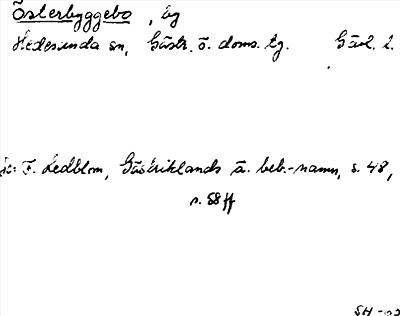 Österbyggebo, by
Hedesunda sn, Gästr. ö. doms. tg. Gävl. l.
Se: F. Ledblom, Gästriklands ä. beb.-namn, s. 48,
s. 58 ff
SH -